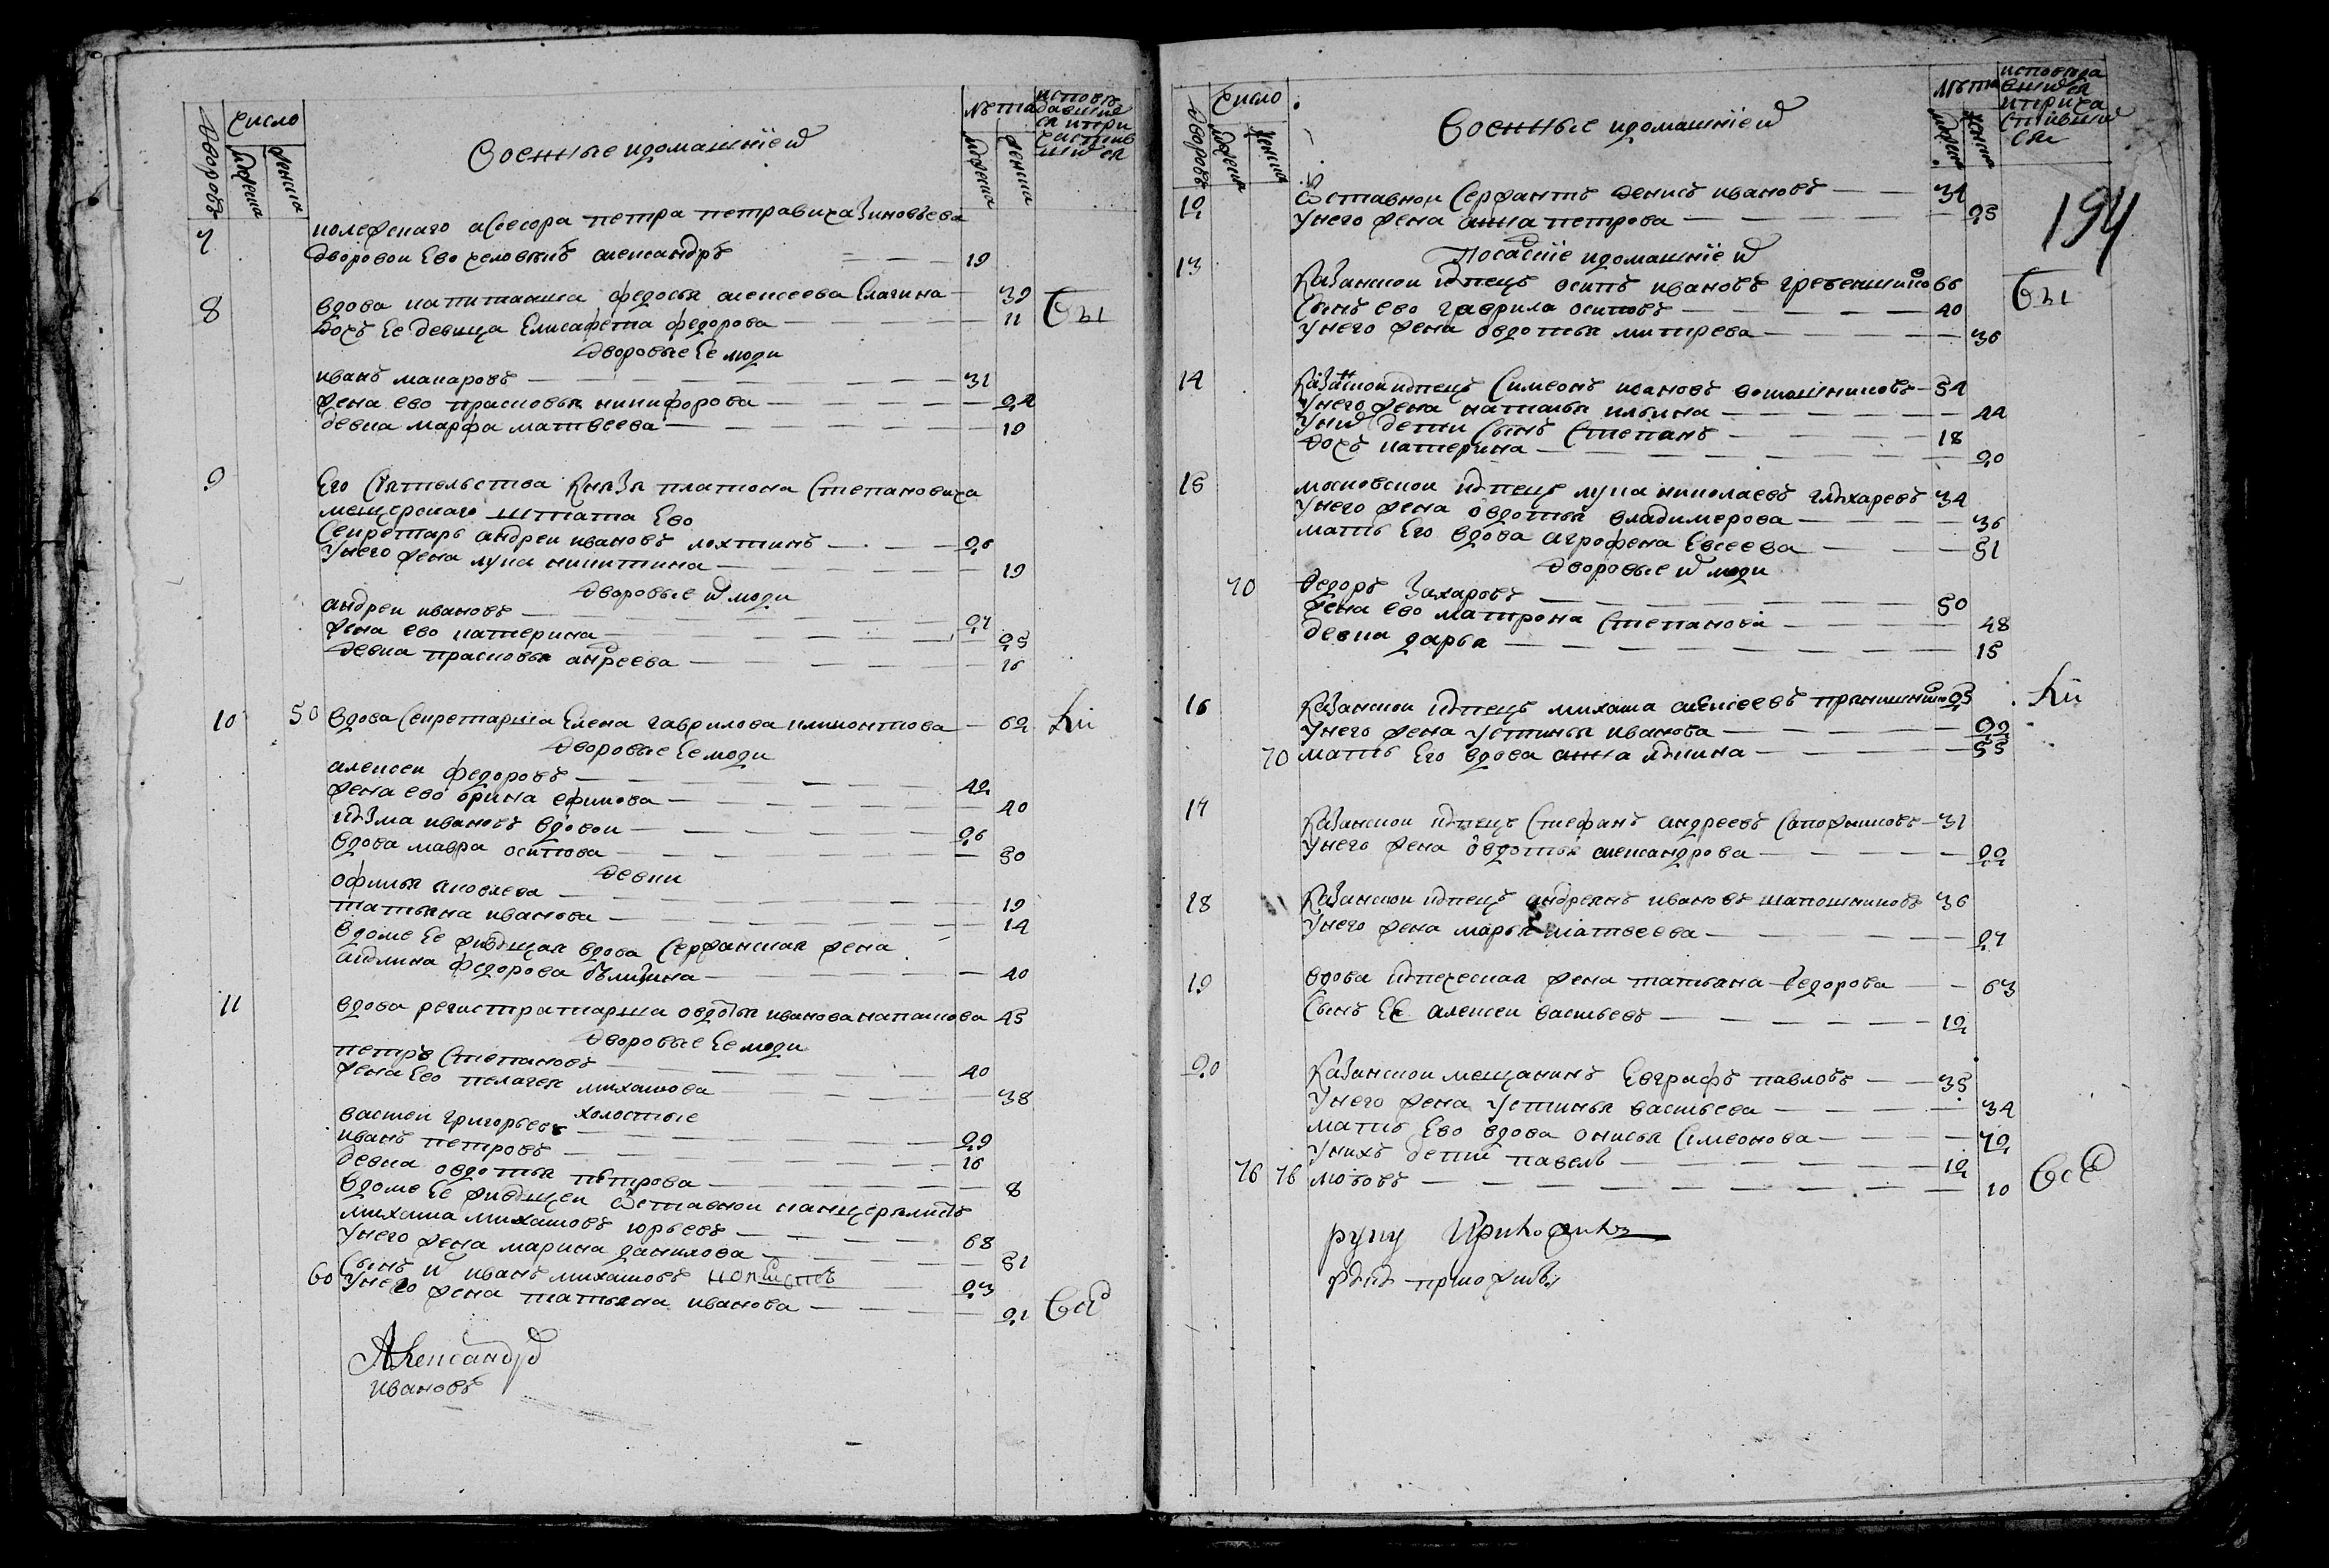 Дворовъ
Число
мужеска
женска
Военные и домашнїе их
Лѣта
мужеска
женска
исповѣ
давшие
ся и при
частив
шихся
7 колежского асесора петра петравича Зиновьева
дворовои Ево человѣкъ александръ 19
8 вдова капитанша федосья алексеева Елагина 39 бы
дочь Ее девица Елисафета федорова 11
дворовые Ее люди
иванъ макаровъ 31
жена ево прасковья никифорова 24
девка марфа матвеева 19
9 Его Сиятельства Князя платона Степановича
мещерскаго штата Ево
Секретарь андреи ивановъ лохтинъ 26
у него жена лука никитина 19
дворовые их люди
андреи ивановъ 27
жена ево катерина 25
девка прасковья андреева 16
10 50 вдова Секретарша Елена гаврилова климонтова 62
дворовые Ее люди
алексеи федоровъ 42
жена ево орина ефимова 40
кузма ивановъ вдовои 26
вдова мавра осипова 50
девки
офимья яковлева 19
татьяна иванова 14
в доме Ее живущая вдова Сержанская жена
акулина федорова бѣлизина 40
11 вдова регистраторша овдотья иванова капаисова 45
дворовые Ее люди
петръ Степановъ 40
жена Ево пелагея михаилова 38
холостые
василеи григорьевъ 29
иванъ петровъ 16
девка овдотья петрова 8
в доме Ее живущеи отставнои канцеръистъ
михаила михаиловъ юрьевъ 68
у него жена марина данилова 51
Сынъ их иванъ михаиловъ копеистъ 23
60 у него жена татьяна иванова 21 всѣ
Александръ
ивановъ
Дворовъ
Число
мужеска
женска
Военные и домашнїе их
Лѣта
мужеска
женска
исповеда
вшихся
и прича
стивших
ся
194
12 отставнои Сержантъ денисъ ивановъ 34
у него жена анна петрова 25
Посацкїе и домашнїе их
13 Казанскои купецъ осипъ ивановъ гребенщиковъ 66 бы
Сынъ ево гаврила осиповъ 40
у него жена овдотья митрева 36
14 Казанскои купецъ Симеонъ ивановъ вотошниковъ 54
у него жена наталья ильина 44
у них дети Сынъ Степанъ 18
дочь катерина 20
15 московскои купецъ лука николаевъ глухаревъ 34
у него жена овдотья владимерова 36
мать Его вдова агрофена Евсеева 51
дворовые их люди
70 Федоръ Захаровъ 50
жена ево матрона Степанова 48
девка дарья 15
16 Казанскои купецъ михаила алексеевъ прянишниковъ 25
у него жена устинья иванова 22
70 мать Его вдова анна лукина 55
17 Казанскои купецъ Стефанъ андреевъ Сапожниковъ 31
у него жена овдотья александрова 22
18 Казанскои купецъ андреянъ ивановъ шапошниковъ 36
у него жена марья матвеева 27
19 вдова купеческая жена татьяна Федорова 63
Сынъ Ее алексеи васильевъ 12
20 Казанскои мещанинъ Евграфъ павловъ 35
у него жена устинья васильева 34
мать Ево вдова онисья Симеонова 72
у нихъ дети павелъ 12
76 76 любовь 10 всѣ
руку приложилъ